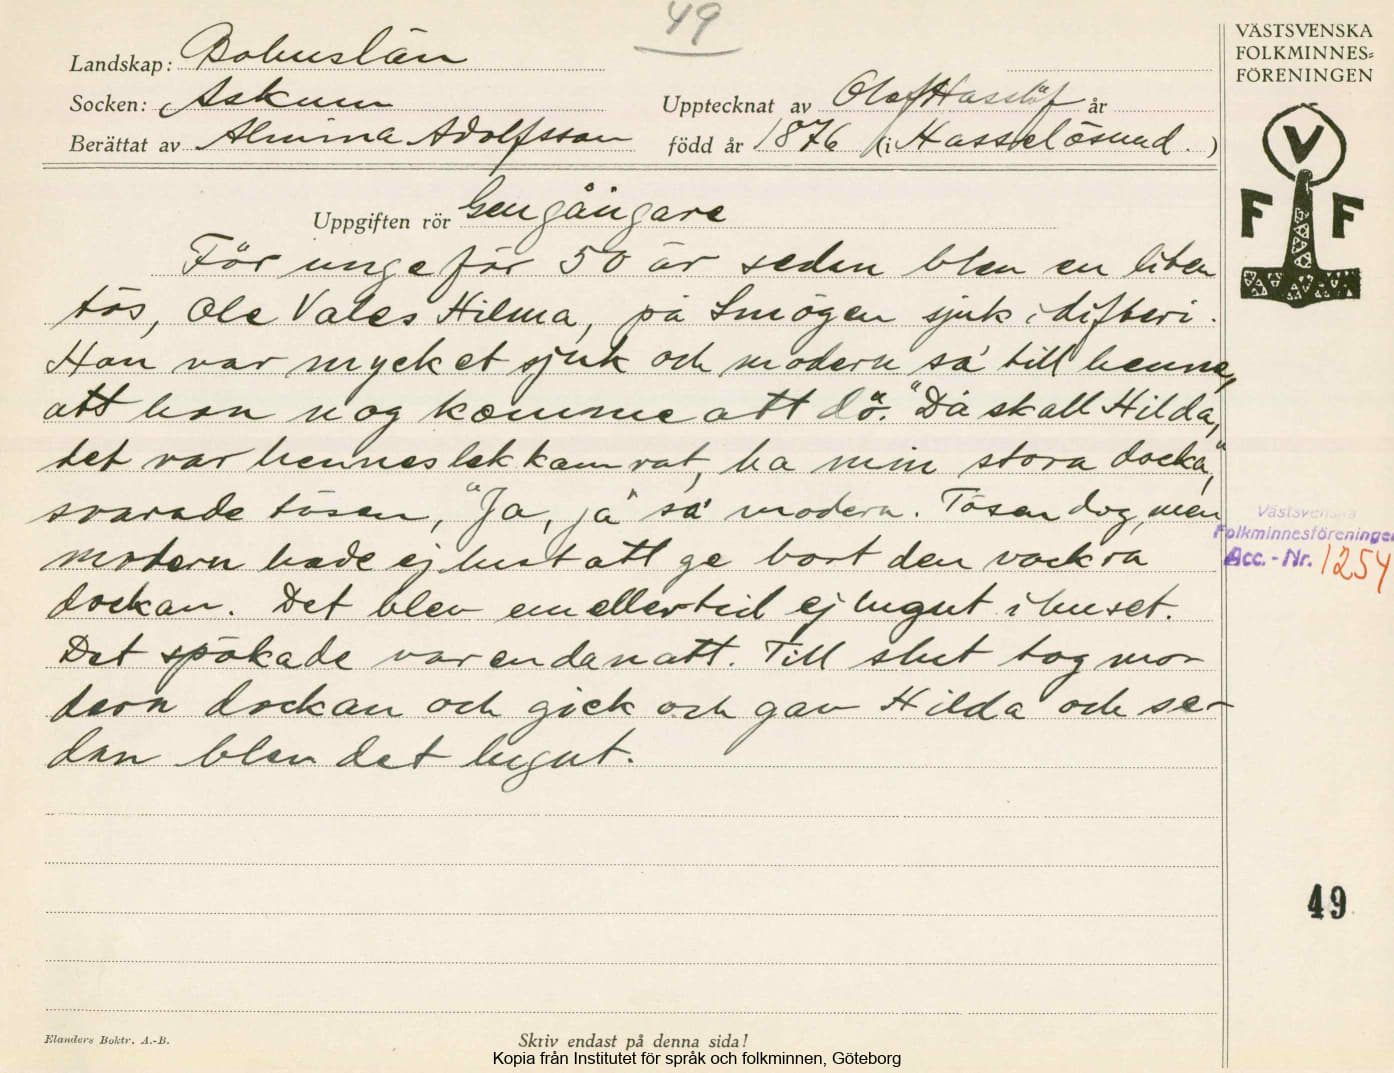 49
VÄSTSVENSKA
FOLKMINNES=
FÖRENINGEN
Landskap: Bohuslän
Socken: Askum
Upptecknat av Olof Hasslöf år
Berättat av Alvina Adolfsson född år 1876 (i Hasselösund.)
V
F F
Uppgiften rör Gengångare
För ungefär 50 år seden blev en liten
tös, Ole Vales Hilma, på Smögen sjuk i difteri.
Hon var mycket sjuk och modern sa' till henne,
att hon nog komme att dö. "Då skall Hilda,"
det var hennes lekkamrat, "ha min stora docka,"
svarade tösen, "Ja, ja" sa' modern. Tösen dog, men
modern hade ej lust att ge bort den vackra
dockan. Det blev emellertid ej lugnt i huset.
Det spökade varenda natt. Till slut tog mo-
dern dockan och gick och gav Hilda och se-
dan blev det lugnt.
Västsvenska
Folkminnesföreningen
Acc. - Nr. 1254
49
Elanders Boktr. A.-B.
Skriv endast på denna sida!
Kopia från Institutet för språk och folkminnen, Göteborg